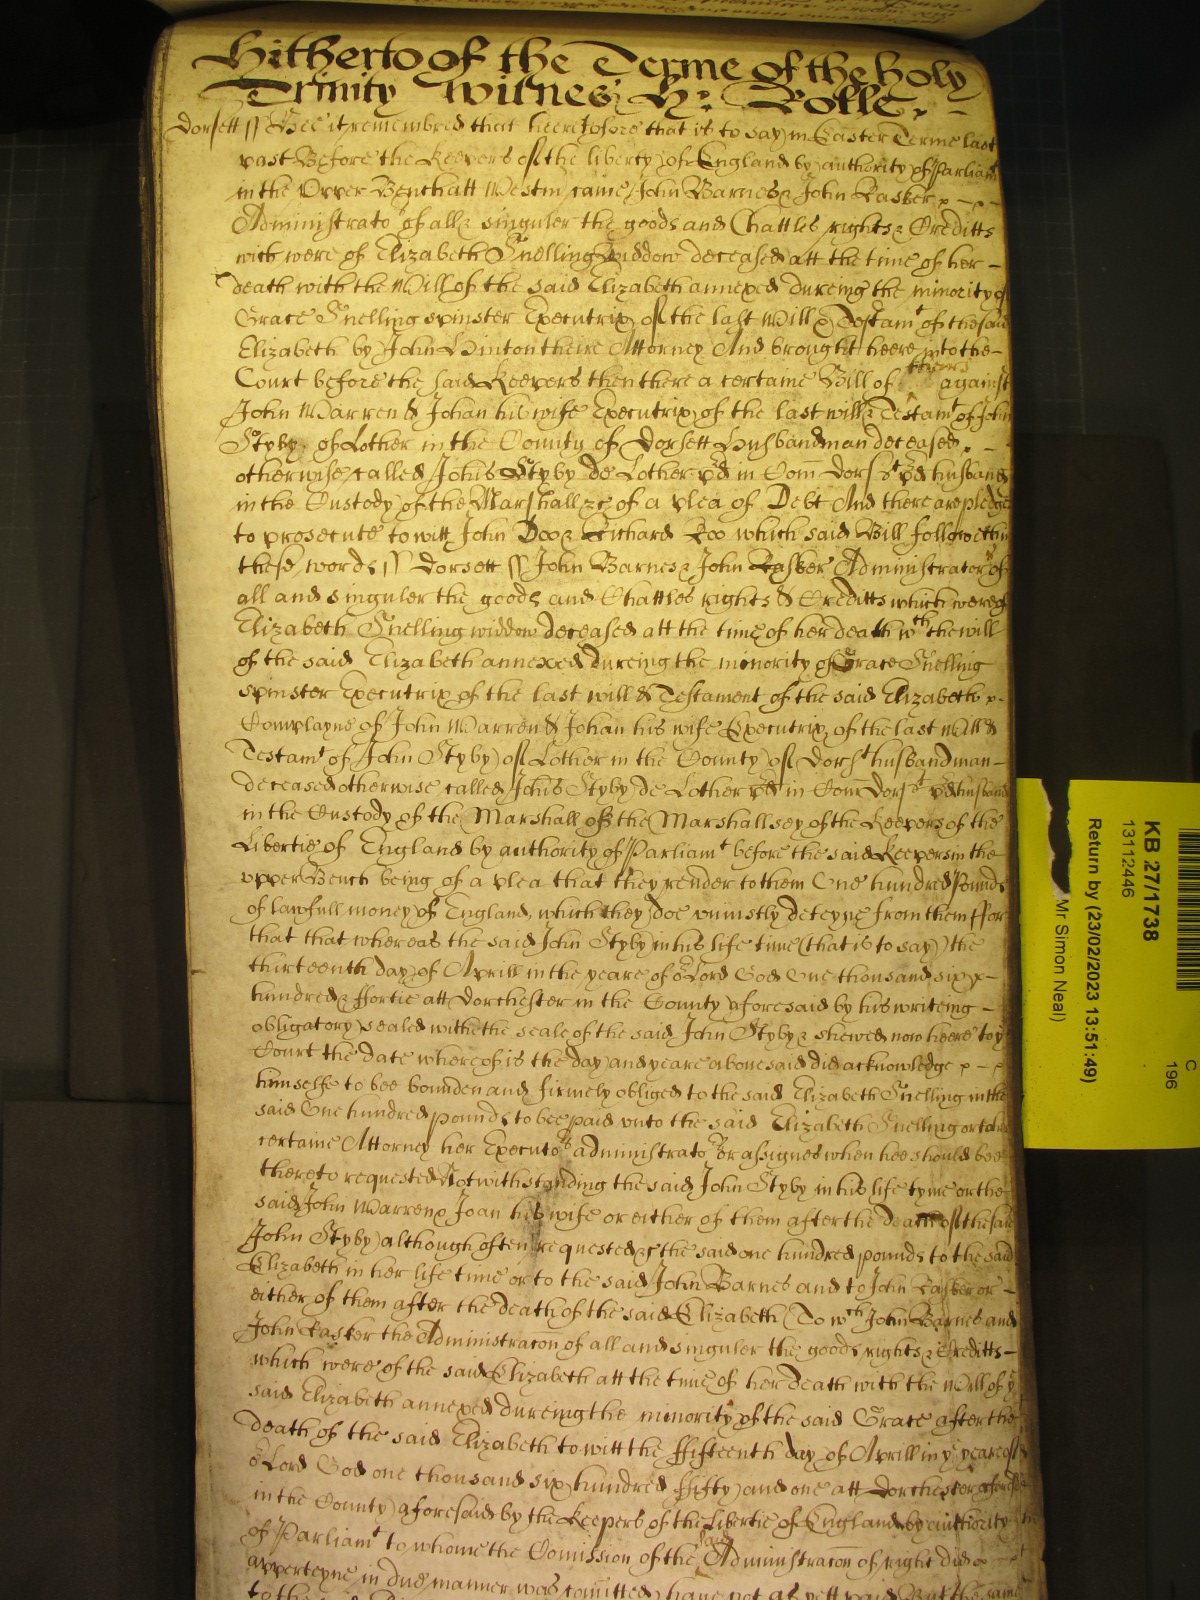 Hitherto of the Terme of the holy
Trinity Witnes H: Rolle.
Dorsett ss Bee it remembred that heeretofore that is to say in Easter Terme last
past Before the Keepers of the liberty of England by authority of Parliamt
in the Upper Bench att Westm came John Barnes & John Lasker
Administrators of all & singuler the goods and Chattles rights & Creditts
wch were of Elizabeth Snelling widdow deceased att the time of her
death with the Will of the said Elizabeth annexed dureing the minority of
Grace Snelling spinster Executrix of the last Will & Testamt of the said
Elizabeth by John Hinton theire Attorney And brought heere into the
Court before the said Keepers then there a certaine Bill of theirs against
John Warren & Johan his wife Executrix of the last will & Testamt of John
Styby of Lother in the County of Dorsett Husbandman deceased
otherwise called Johis Styby de Lother pd in Com Dorst pd husband
in the Custody of the Marshall &c of a plea of Debt And there are pledges
to prosecute to witt John Doo & Richard Roo which said Bill followeth in
these words ss Dorsett ss John Barnes & John Lasker Administrators of
all and singuler the goods and Chattles rights & Creditts which were of
Elizabeth Snelling widdow deceased att the time of her death wth the will
of the said Elizabeth annexed dureing the minority of Grace Snelling
spinster Executrix of the last will & Testament of the said Elizabeth
Complayne of John Warren & Johan his wife Executrix of the last Will &
Testamt of John Styby of Lother in the County of Dorst husbandman
deceased otherwise called Johis Styby de Lother pd in Com Dorst pd husband
in the Custody of the Marshall of the Marshallsey of the Keepers of the
Libertie of England by authority of Parliamt before the said Keepers in the
upper Bench being of a plea that they render to them One hundred Pounds
of lawfull money of England which they doe uniustly deteyne from them ffor
that that whereas the said John Styby in his life time (that is to say) the
thirteenth day of Aprill in the yeare of or Lord God One thousand six
hundred & ffortie att Dorchester in the County aforesaid by his writeing
obligatory sealed with the seale of the said John Styby & shewed now heere to ye
Court the date whereof is the day and yeare abovesaid did acknowledge
himselfe to bee bounden and firmely obliged to the said Elizabeth Snelling in the
said One hundred pounds to bee paid unto the said Elizabeth Snelling or to her
certaine Attorney her Executors administrators or assignes when hee should bee
thereto requested Notwithstanding the said John Styby in his life tyme or the
said John Warren & Joan his wife or either of them after the death of the said
John Styby although often requested &c the said one hundred pounds to the said
Elizabeth in her life time or to the said John Barnes and to John Lasker or
either of them after the death of the said Elizabeth (To wch John Barnes and
John Lasker the Administracon of all and singuler the goods rights & Creditts
which were of the said Elizabeth att the time of her death with the Will of ye
said Elizabeth annexed dureing the minority of the said Grace after the
death of the said Elizabeth to witt the ffifteenth day of Aprill in ye yeare of
or Lord God one thousand six hundred ffifty and one att Dorchester aforesd
in the County aforesaid by the Keepers of the Libertie of England by authority
of Parliamt to whome the Comission of the said Administracon of right did
apperteyne in due manner was comitted) have not as yett paid But the same
KB 27/1738
13112446
Return by (23/02/2023 13:51:49)
Mr Simon Neal)
C
196